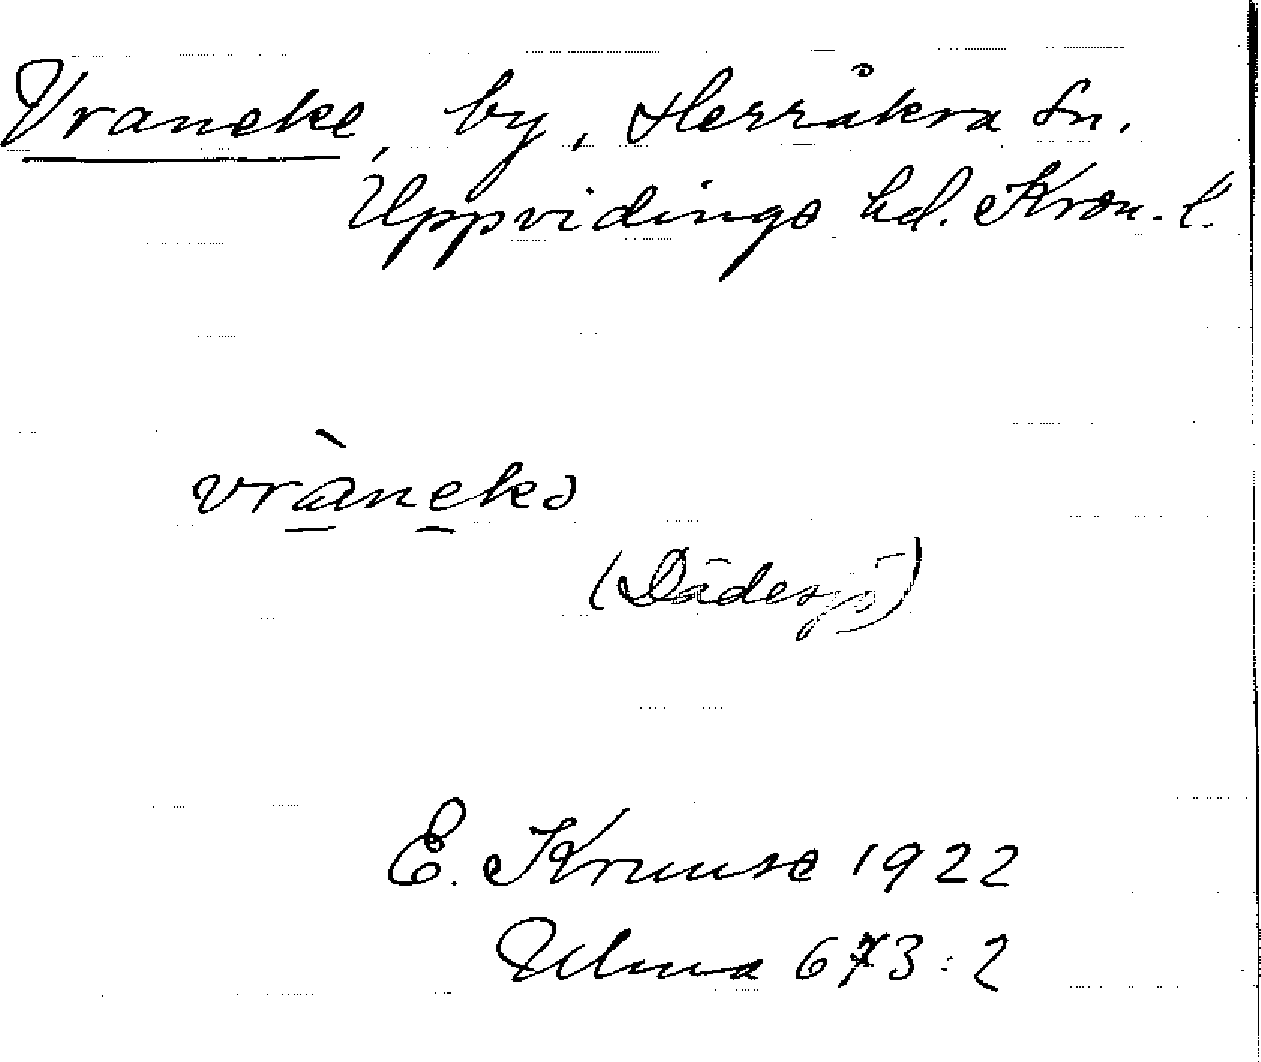 Vraneke, by, Herråkra sn.
Uppvidinge hd. Kron. l.
vrànekə
(Dädesjö)
E. Kruuse 1922
Ulma 673:2